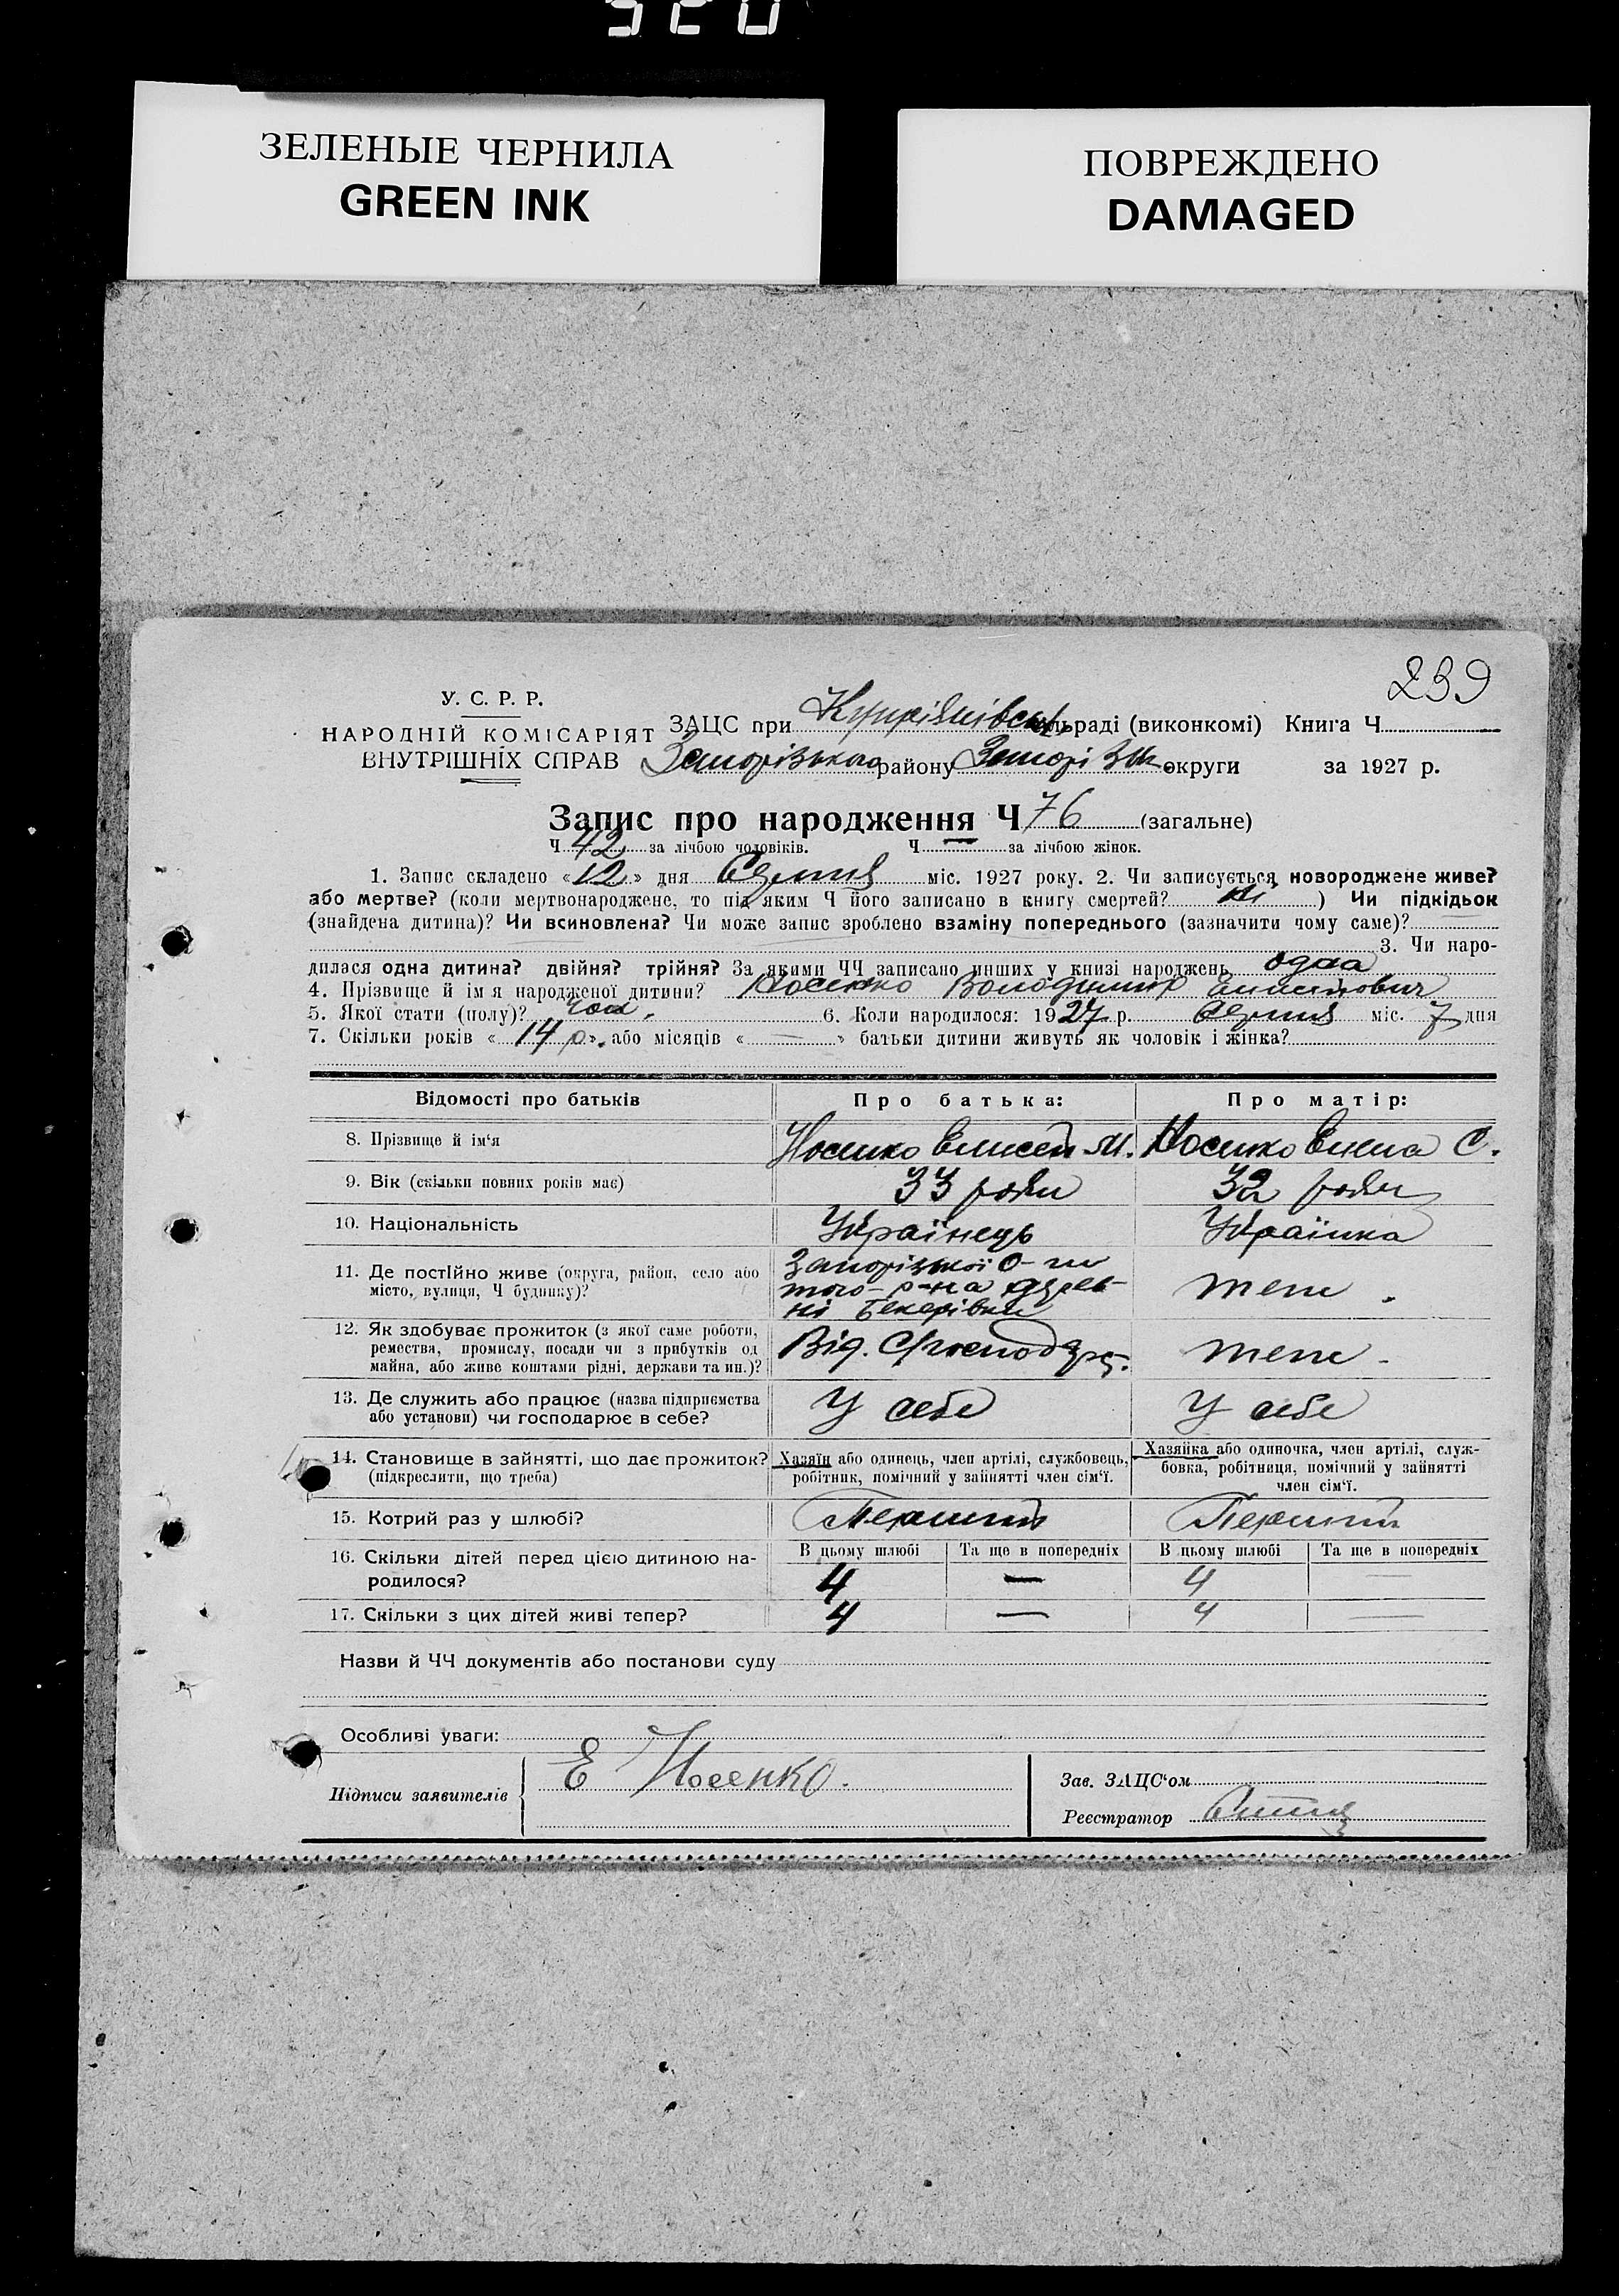 ЗЕЛЕНЫЕ ЧЕРНИЛА
GREEN INK
ПОВРЕЖДЕНО
DAMAGED
239
У. С. Р. Р.
НАРОДНІЙ КОМІСАРІЯТ
ВНУТРІШНІХ СПРАВ
ЗАЦС при Кушугумівськ. сільраді (виконкомі) Книга Ч
Запорізького району Запорізьк. округи за 1927 р.
Запис про народження Ч 76 (загальне)
Ч 42 за лічбою чоловіків. Ч — за лічбою жінок.
1. Запис складено «12» дня Серпня міс. 1927 року. 2. Чи записується новороджене живе?
або мертве? (коли мертвонароджене, то під яким Ч його записано в книгу смертей? ) Чи підкідьок
(знайдена дитина)? Чи всиновлена? Чи може запис зроблено взаміну попереднього (зазначити чому саме)?
3. Чи наро-
дилася одна дитина? двійня? трійня? За якими ЧЧ записано инших у книзі народжень одна
4. Прізвище й ім я народженої дитини? Носенко Володимир Елисейович
5. Якої стати (полу)? чол. 6. Коли народилося: 1927 р. Серпня міс. 7 дня
7. Скільки років «14 р.» або місяців « — » батьки дитини живуть як чоловік і жінка?
Відомості про батьків Про батька: Про матір:
8. Прізвище й ім‘я Носенко Елисей М. Носенко Елена С.
9. Вік (скільки повних років має) 33 роки 32 роки
10. Національність Українець Українка
11. Де постійно живе (округа, район, село або
місто, вулиця, Ч будинку)?
Запорізької о-ги
того р-на дерев-
ні Бекарівки
теж.
12. Як здобуває прожиток (з якої саме роботи,
ремества, промислу, посади чи з прибутків од
майна, або живе коштами рідні, держави та ин.)?
Від. С/господарс. теж.
13. Де служить або працює (назва підприємства
або установи) чи господарює в себе?
У себе У себе
14. Становище в зайнятті, що дає прожиток?
(підкреслити, що треба)
Хазяїн або одинець, член артілі, службовець,
робітник, помічний у зайнятті член сім‘ї.
Хазяйка або одиночка, член артілі, служ-
бовка, робітниця, помічний у зайнятті
член сім‘ї.
15. Котрий раз у шлюбі? Перший Перший
16. Скільки дітей перед цією дитиною на-
родилося?
В цьому шлюбі Та ще в попередніх В цьому шлюбі Та ще в попередніх
4 — 4 —
17. Скільки з цих дітей живі тепер? 4 — 4 —
Назви й ЧЧ документів або постанови суду
Особливі уваги:
Підписи заявителів Е Носенко.
Зав. ЗАЦС‘ом
Реєстратор